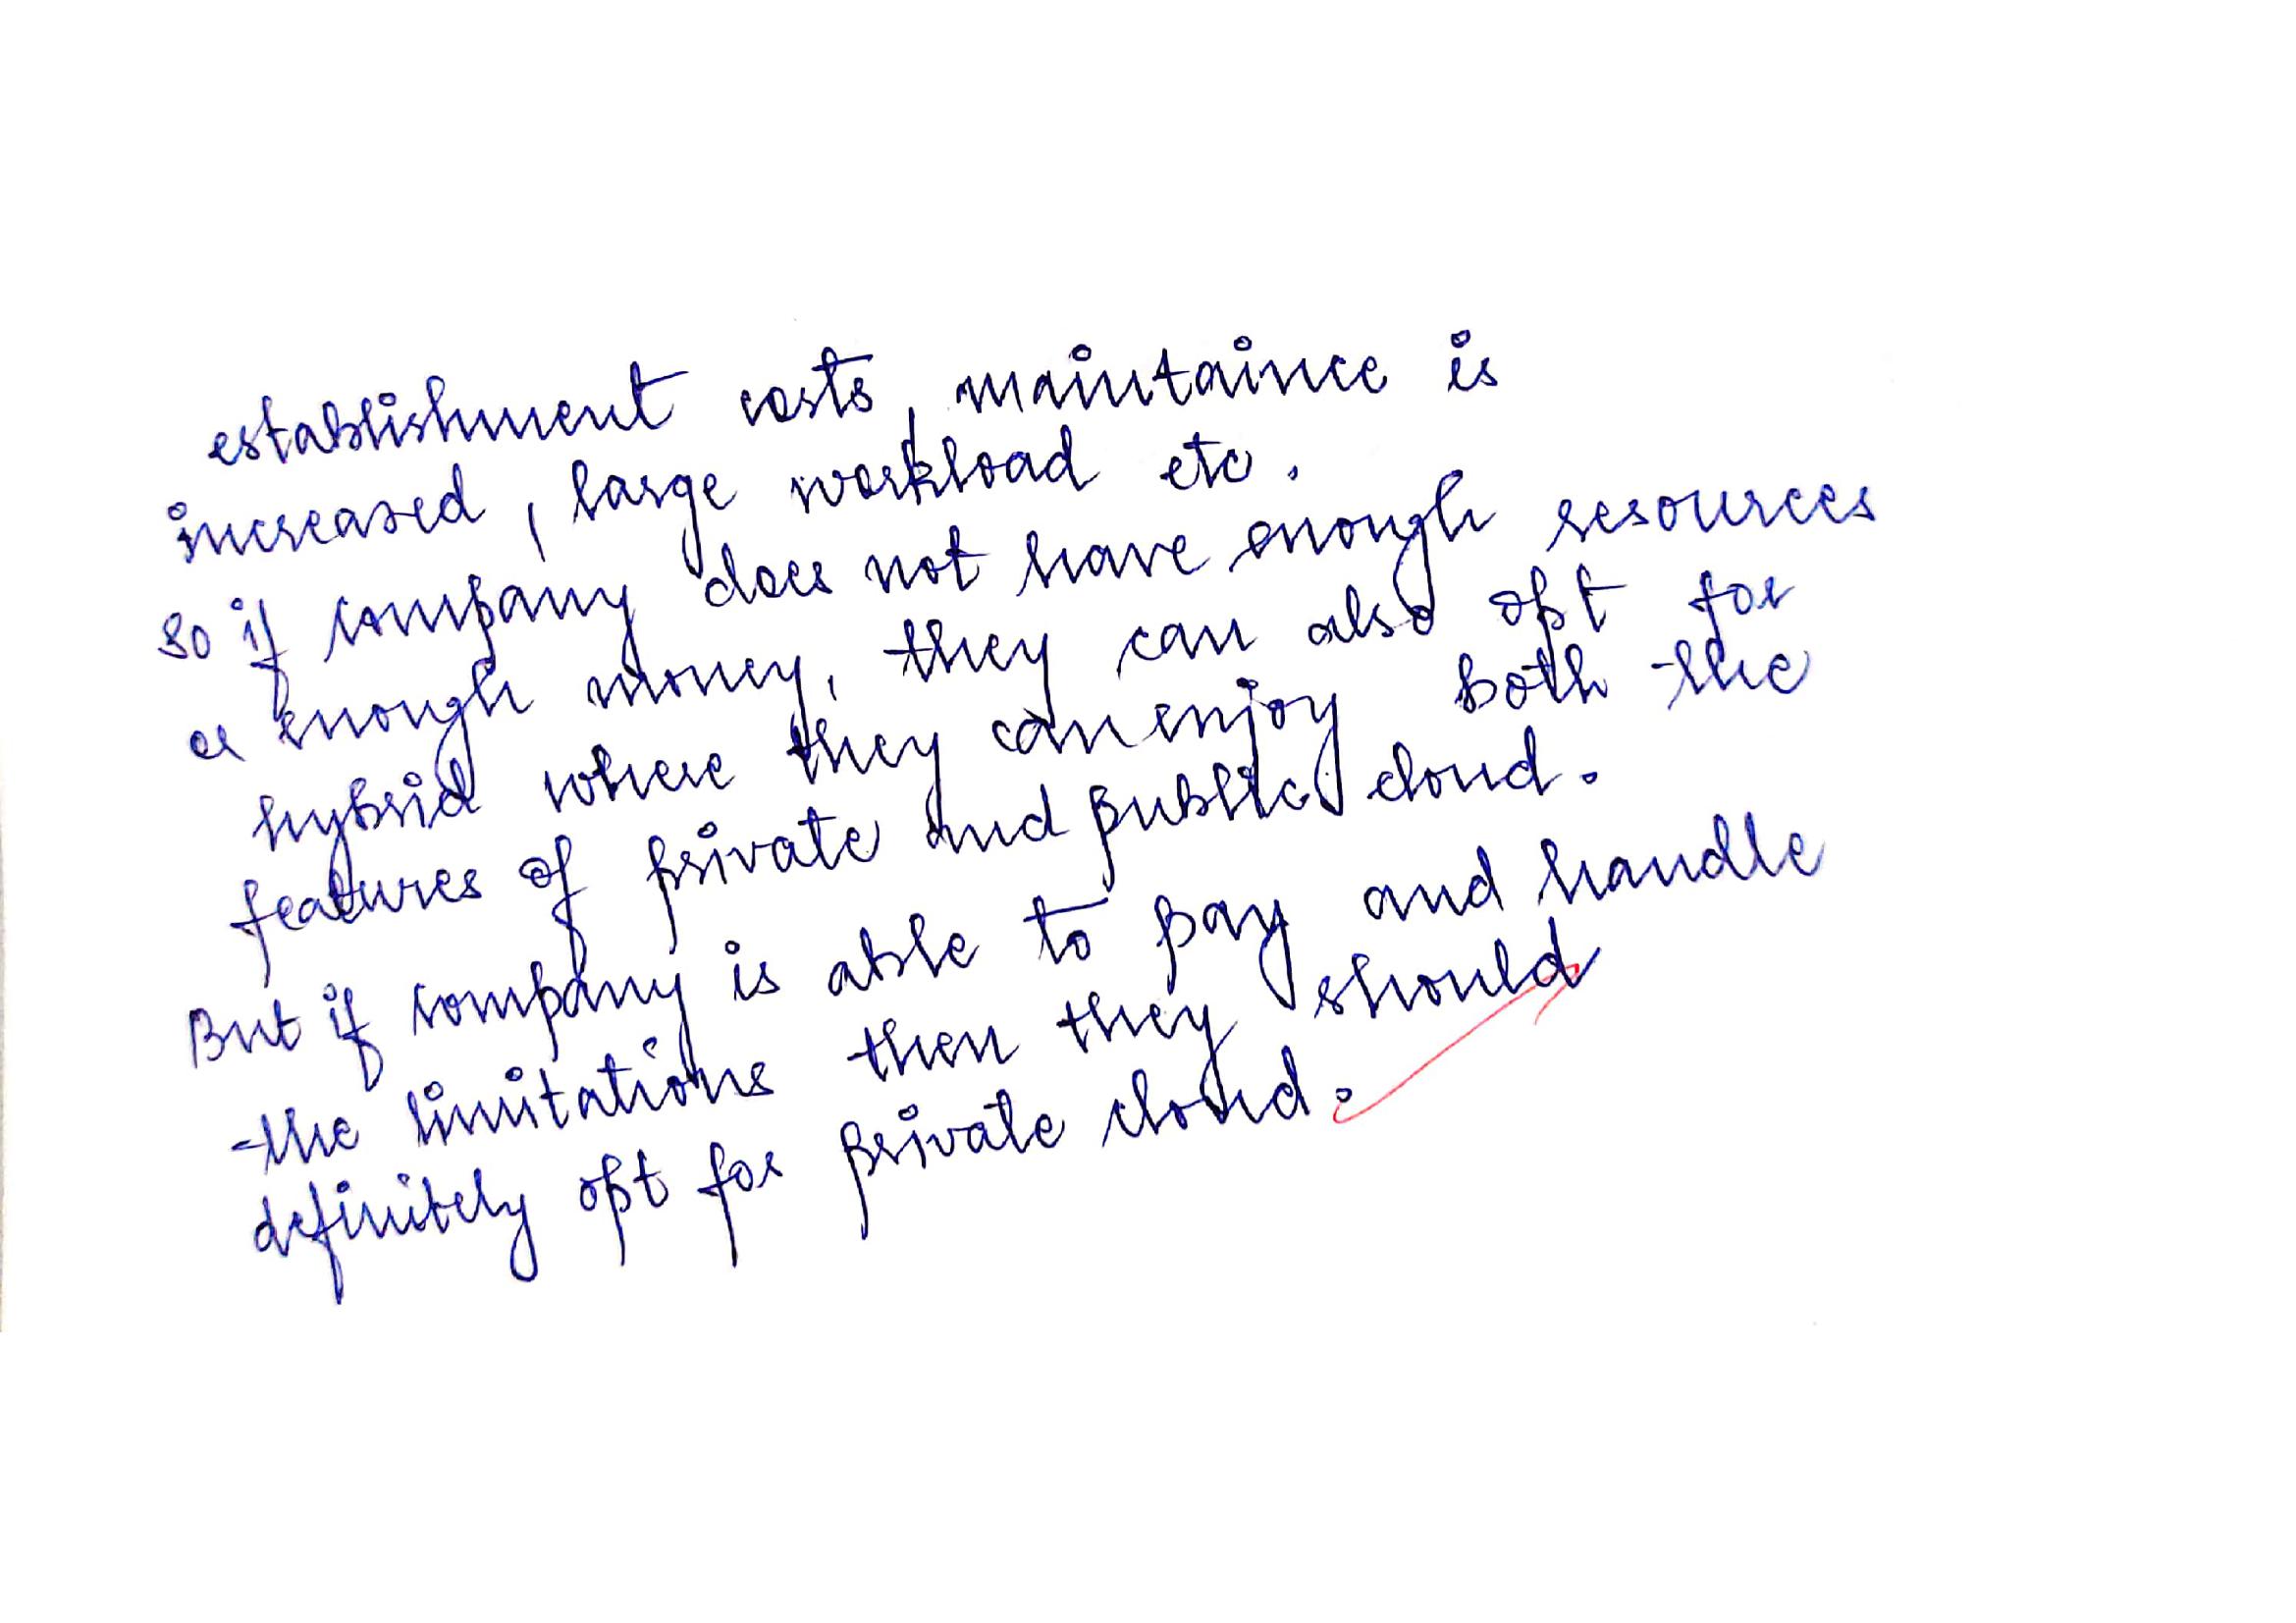 establishment costs, maintaince is
increased, large workload etc.
So if company does not have enough resources
or enough money, they can also opt for
hybrid where they can enjoy both the
features of private and public cloud.
But if company is able to pay and handle
the limitations then they should
definitely opt for private cloud.